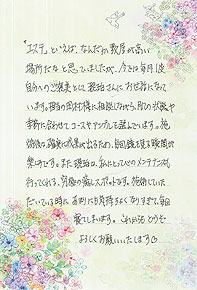 「エステ」といえば、なんだか敷居が高い
場所だなと思っていましたが、今では毎月1度
自分へのご褒美として通治さんにお世話になって
います。担当の田村様に相談しながら、肌の状態や
季節に合わせてコースやアンプルを選んでいます。施
術後は確実に効果が出るため、毎回鏡を見る瞬間が
楽しみです。また    は、私にとって心のメンテナンスも
行ってくれる、究極の癒しスポットです。施術していた
だいている時に、あまりに気持ちよくなりすぎて、毎回
寝てしまいます。これからもどうぞ
よろしくお願いいたします